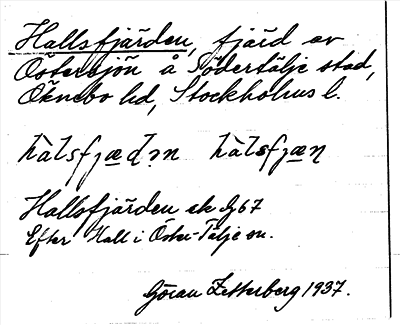 Hallsfjärden, fjärd av
Östersjön å Södertälje stad,
Öknebo hd, Stockholms l.
hàlsfjæḍən hàlsfjæṇ
Hallsfjärden ek G67
Efter Hall i Öster-Tälje sn.
Göran Zetterberg 1937.